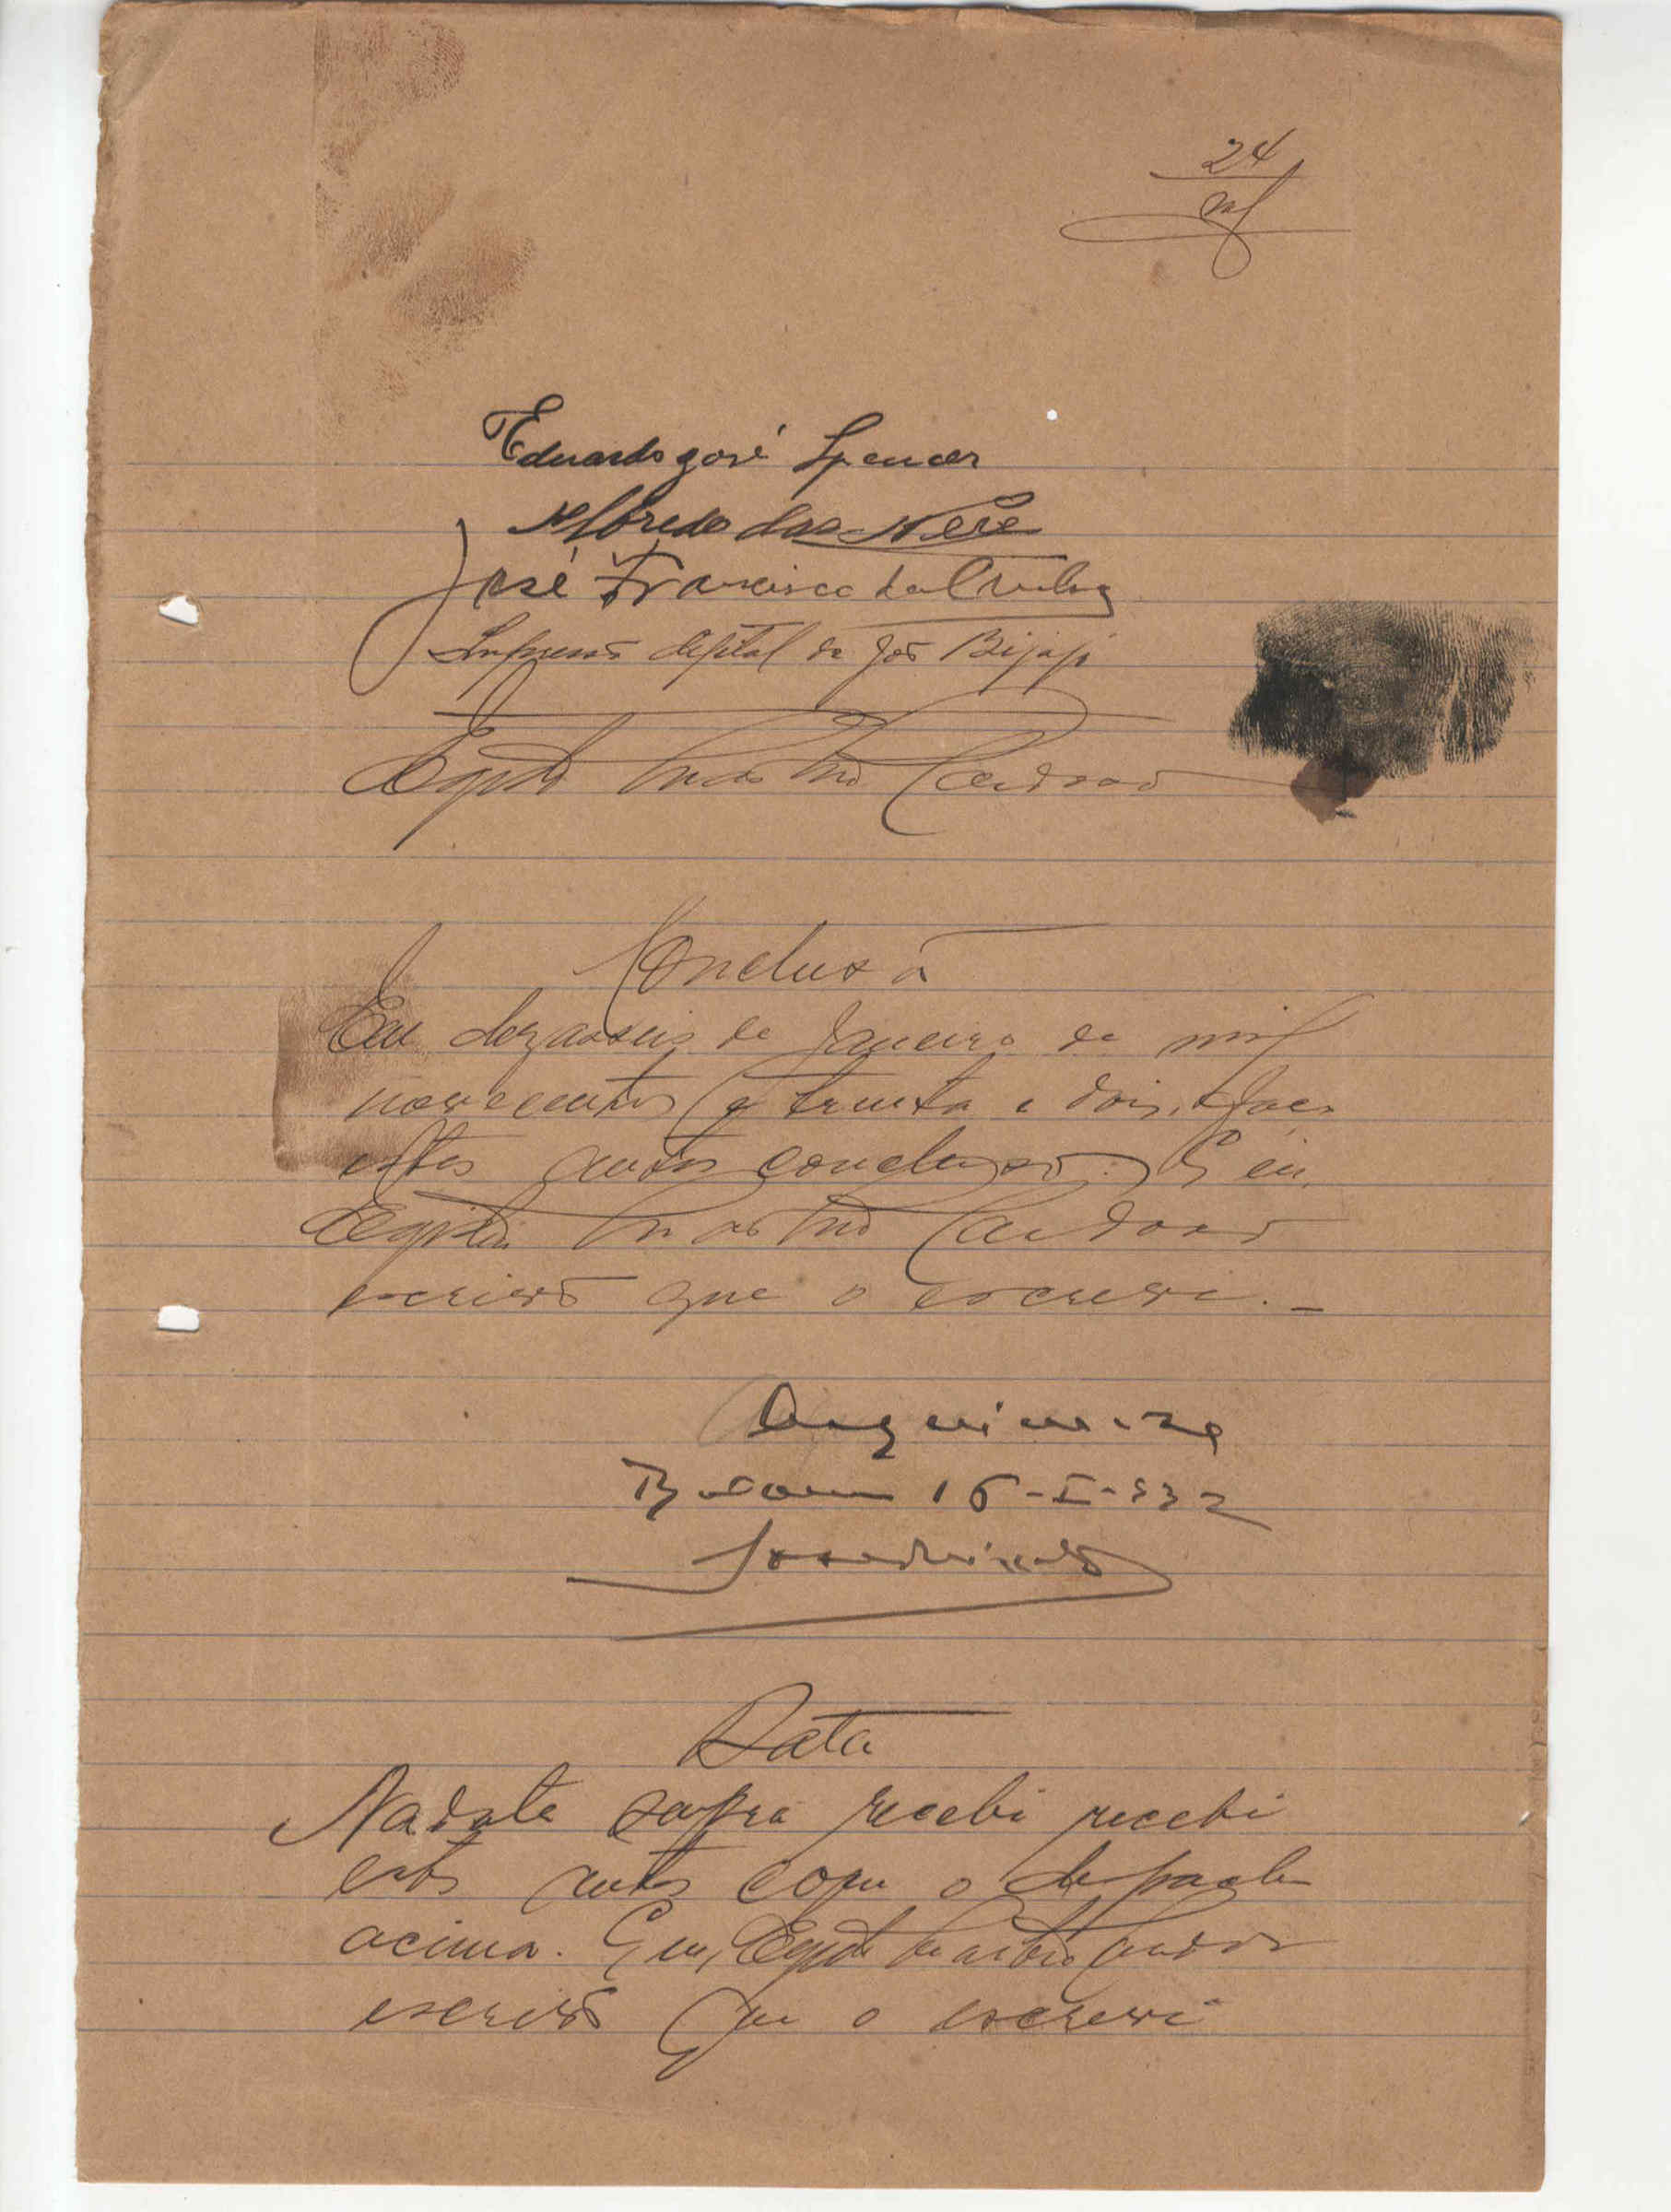 24
Eduardo José Spencer
Alfredo das Neve
José Francisco da
Impressão digital de João Bijajó
Egidio Martins Cardoso
Conclusã
Em dezasseis de Janeiro de mil
novecentos e trinta e dois, faço
estes autos conclusos. E eu,
Egidio Martins Cardoso
escrivão que o escrevi. _
Bolama 16-I-932
Data
Na data supra recebi recebi
estes autos com o despacho
acima. E eu, Egidio Martins Cardoso
escrivão que o escrevi